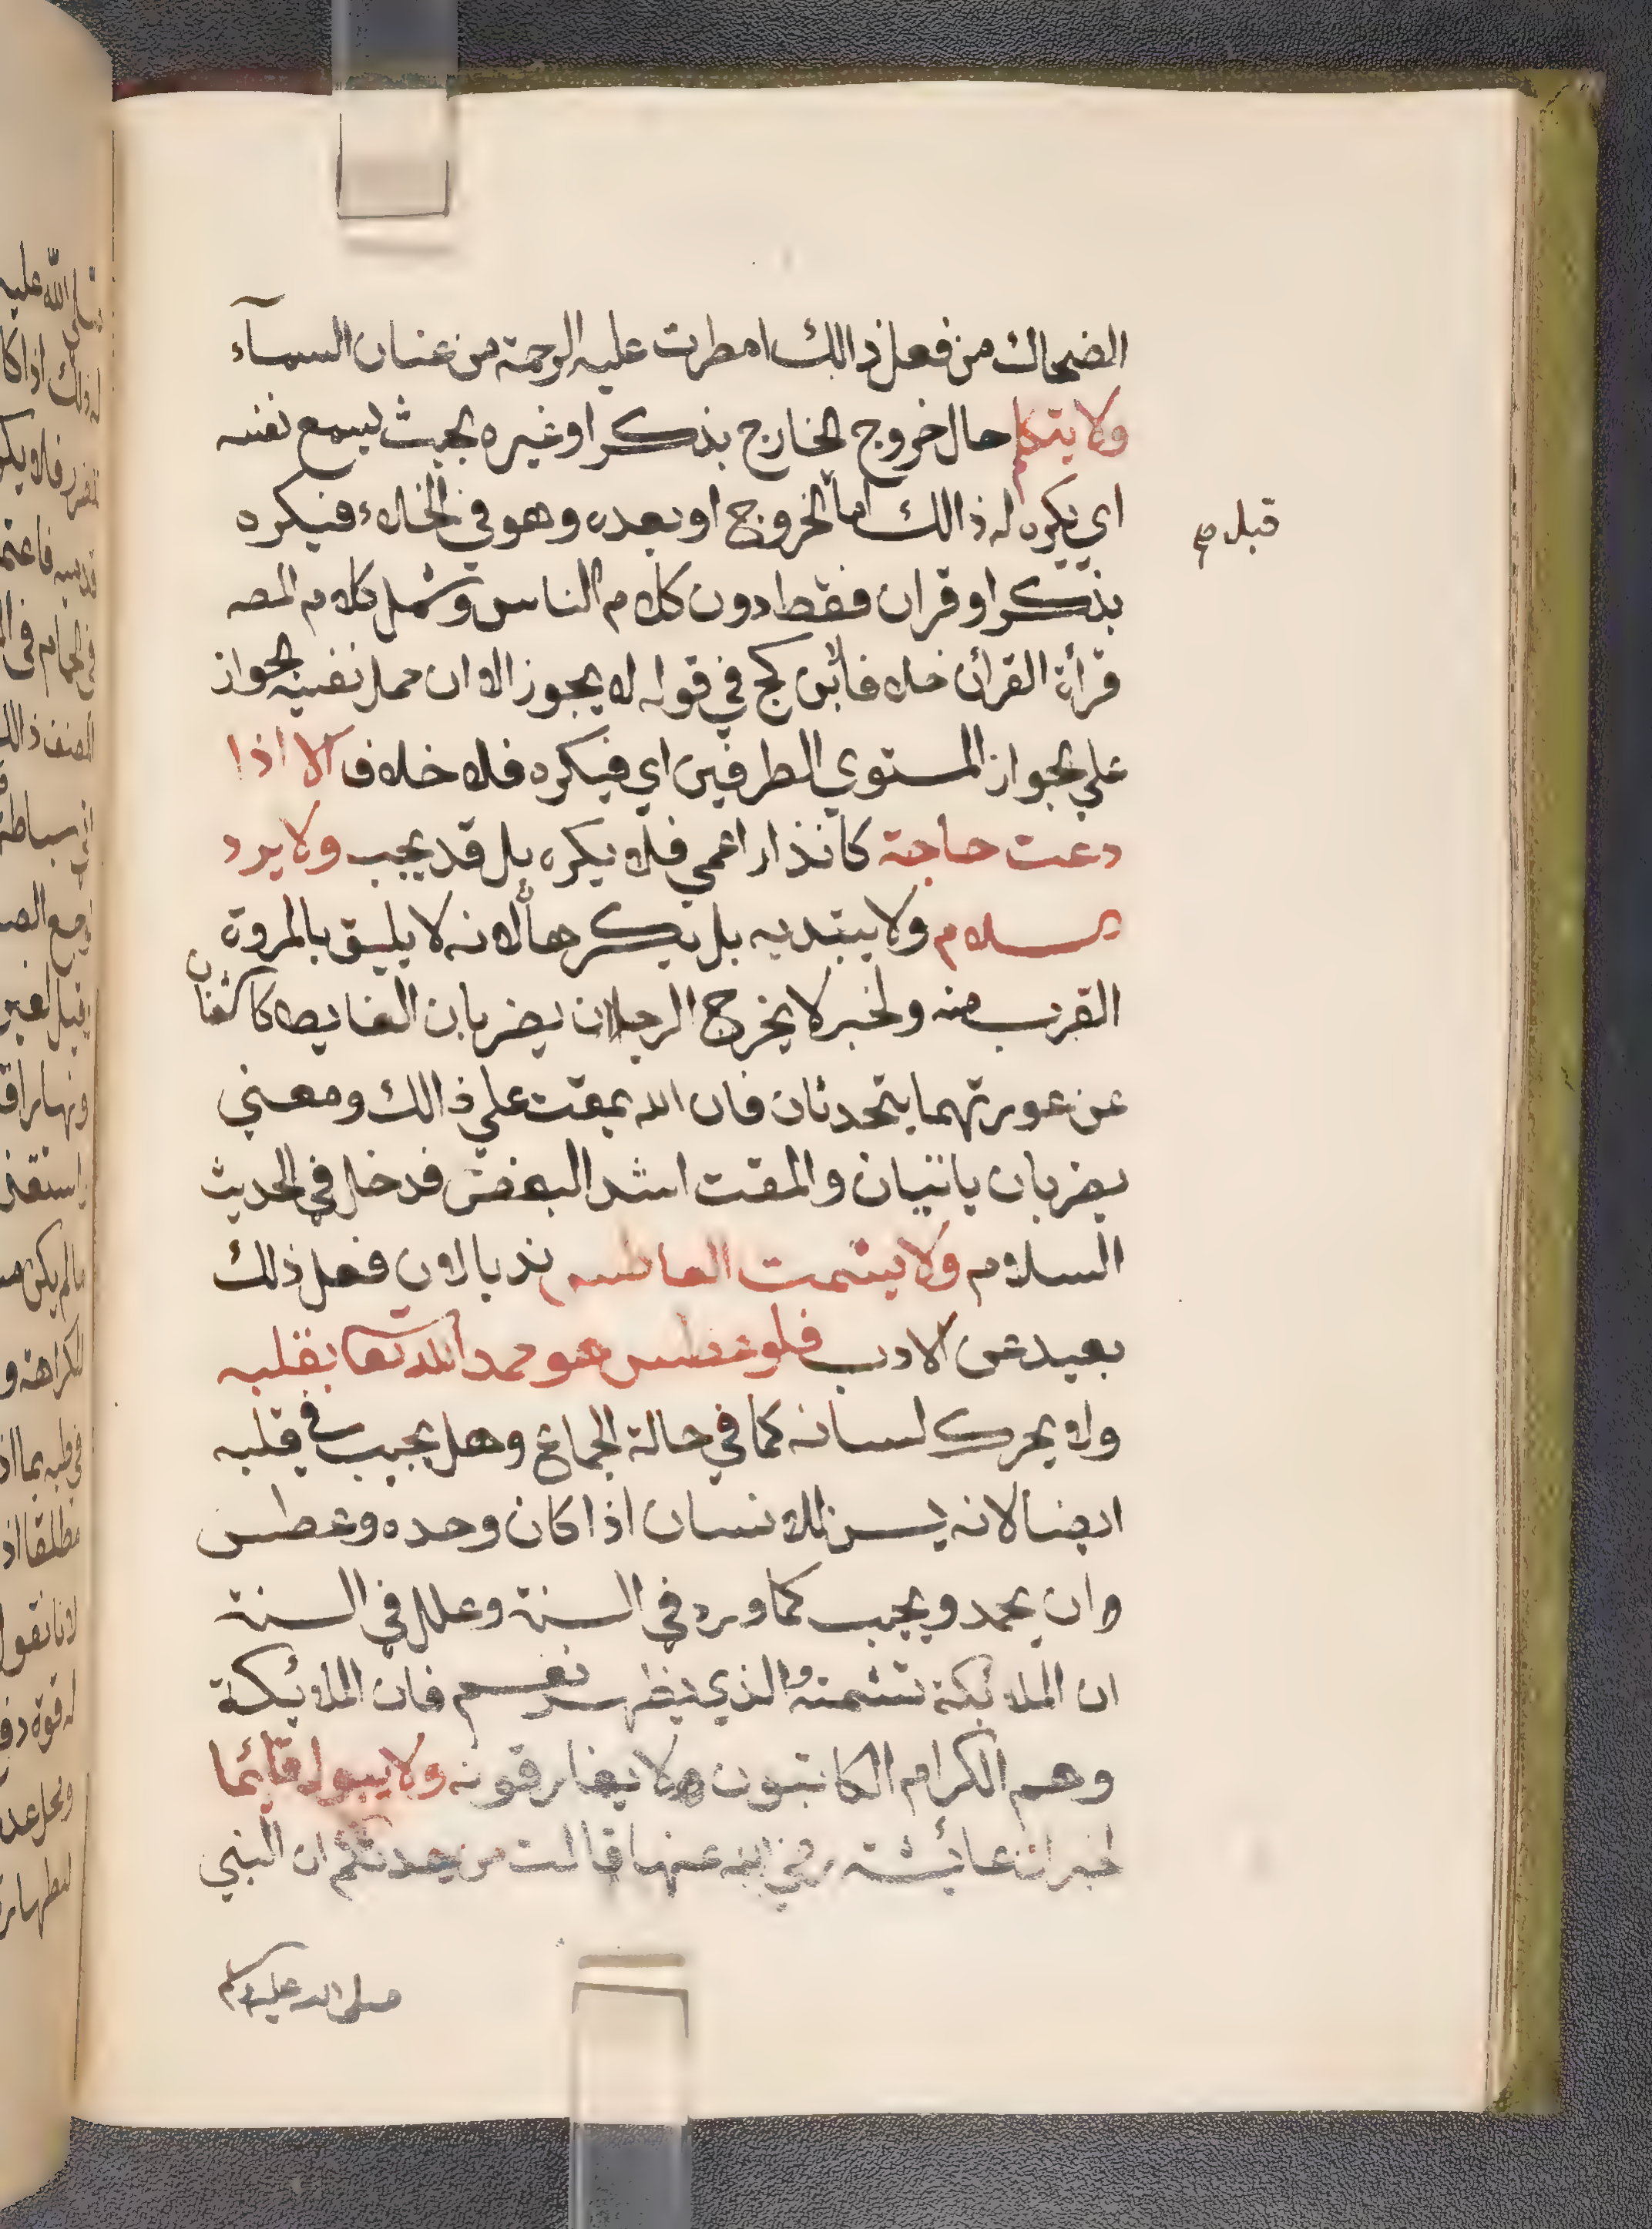 الضحاك من فعل ذالك امطرت عليه الرحمة من عنان السمآء
ولا يتكلم حال خروج الخارج بذكر او غيره بحيث يسمع نفسه
اي يكره له ذالك اما الخروج او بعده وهو في الخلاء فيكره
قبل صح
بذكر او قران فقط دون كلام الناس وشمل كلام المصه
قرأة القرأن خلافا لابن كج في قوله لا يجوز الا ان حمل نفيه الجواز
علي الجواز المستوي الطرفين اي فيكره فلا خلاف الا اذا
دعت حاجة كانذار اعمي فلا يكره بل قد يجب ولا يرد
السلام ولا يبتديه بل يكرهان لانه لا يليق بالمروة
القرب منه ولخبر لا يخرج الرجلان يضربان الغايط كاشفان
عن عورتهما يتحدثان فان الله يمقت علي ذالك ومعني
يضربان ياتيان والمقت اشد البغض فدخل في الحديث
السلام ولا يشمت العاطس ندبا لان فعل ذلك
بعيد عن الادب فلو عطس هو حمد الله تعا بقلبه
ولا يحرك لسانه كما في حالة الجماع وهل يجيب في قلبه
ايضا لانه يسن للانسان اذا كان وحده وعطس
وان يحمد ويجيب كما ورد في السنة وعلل في السنة
ان الملائكة تشمته والذي يظهر نعم فان الملائكة
وهم الكرام الكاتبون لا يفارقونه ولا يبول قائما
لخبر ان عائشة رضي الله عنها قالت من حدثكم ان النبي
صلى الله عليه وسلم